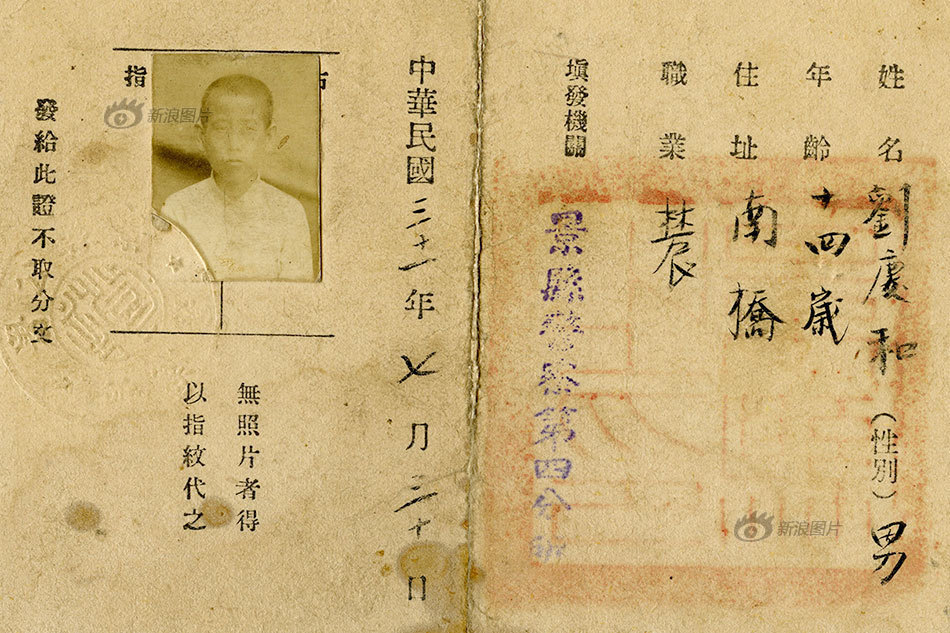 姓名劉慶和（性別）男
年齡十四歲
住址南橋
職業農
塡發機關
景縣警察第四分
中華民國三十一年七月三十日
無照片者得
以指紋代之
指
發給此證不取分文
新浪图片
新浪图片